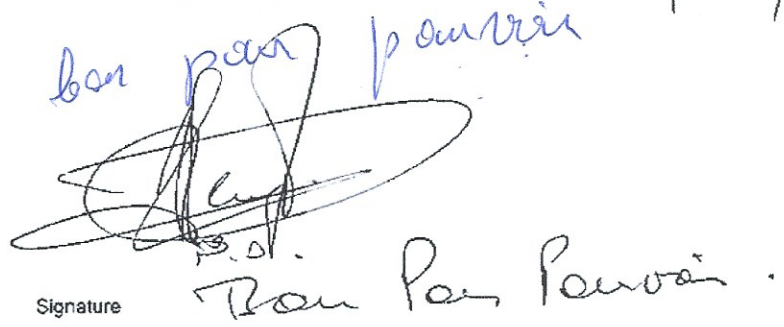 bon pour pouvoir
P.O.
Signature Bon Pour Pouvoir.